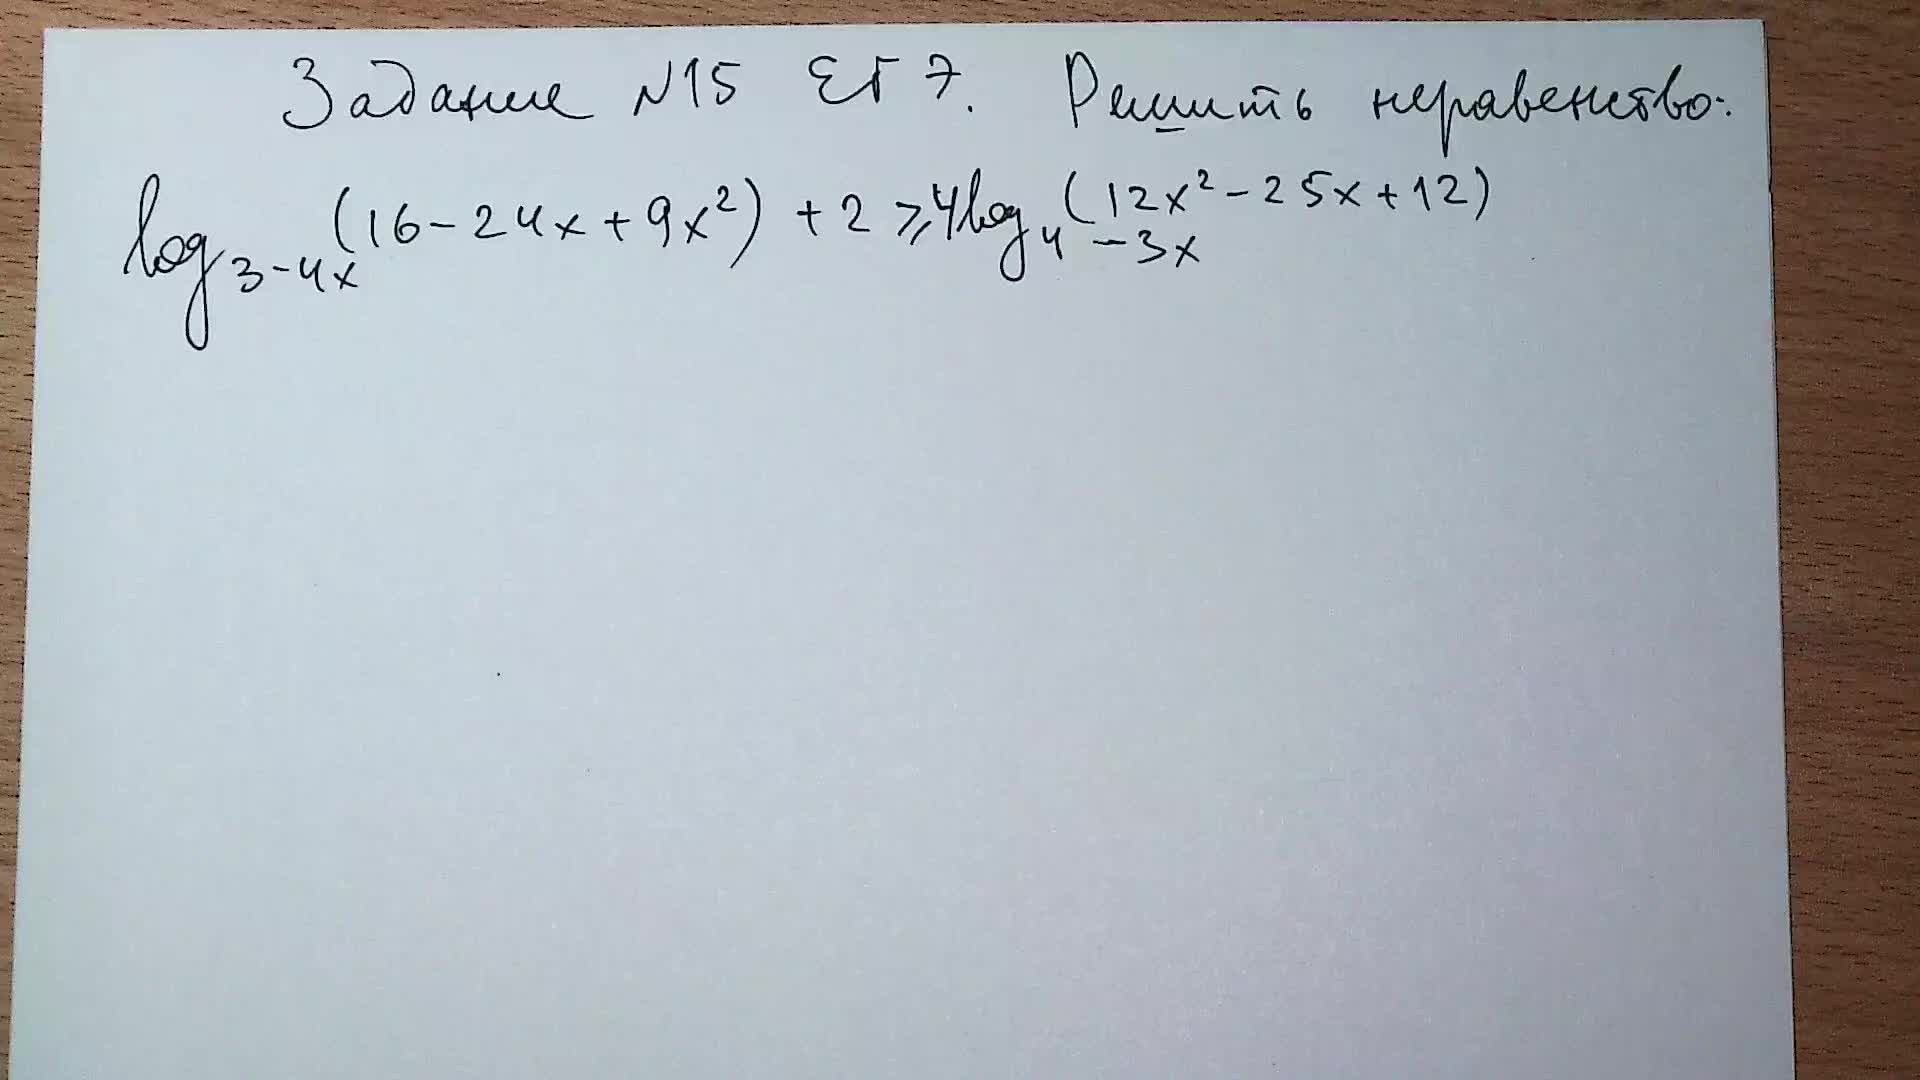 Задание N15 ЕГЭ. Решить неравенство:
log₃₋₄ₓ(16-24x+9x²)+2⩾4log₄₋₃ₓ(12x²-25x+12)